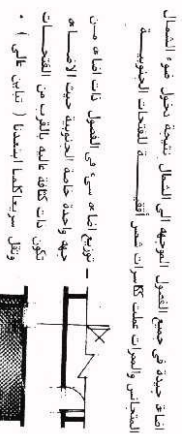 اضاءة جيدة في جميع الفصول الموجهه الى الشمال نتيجة دخول ضوء الشمال
المتجانس والممرات عملت ككاسرات شمس أفقيــة للفتحات الجنوبيــة
ــ توزيع اضاءه سىء فى الفصول ذات اضاءه مــن
جهه واحدة خاصة الجنوبية حيث الاضــاءه
تكون ذات كثافة عاليه بالقرب من الفتحــات
وتقل سريعا كلما ابتعدنا ( تباين عالى ) ٠